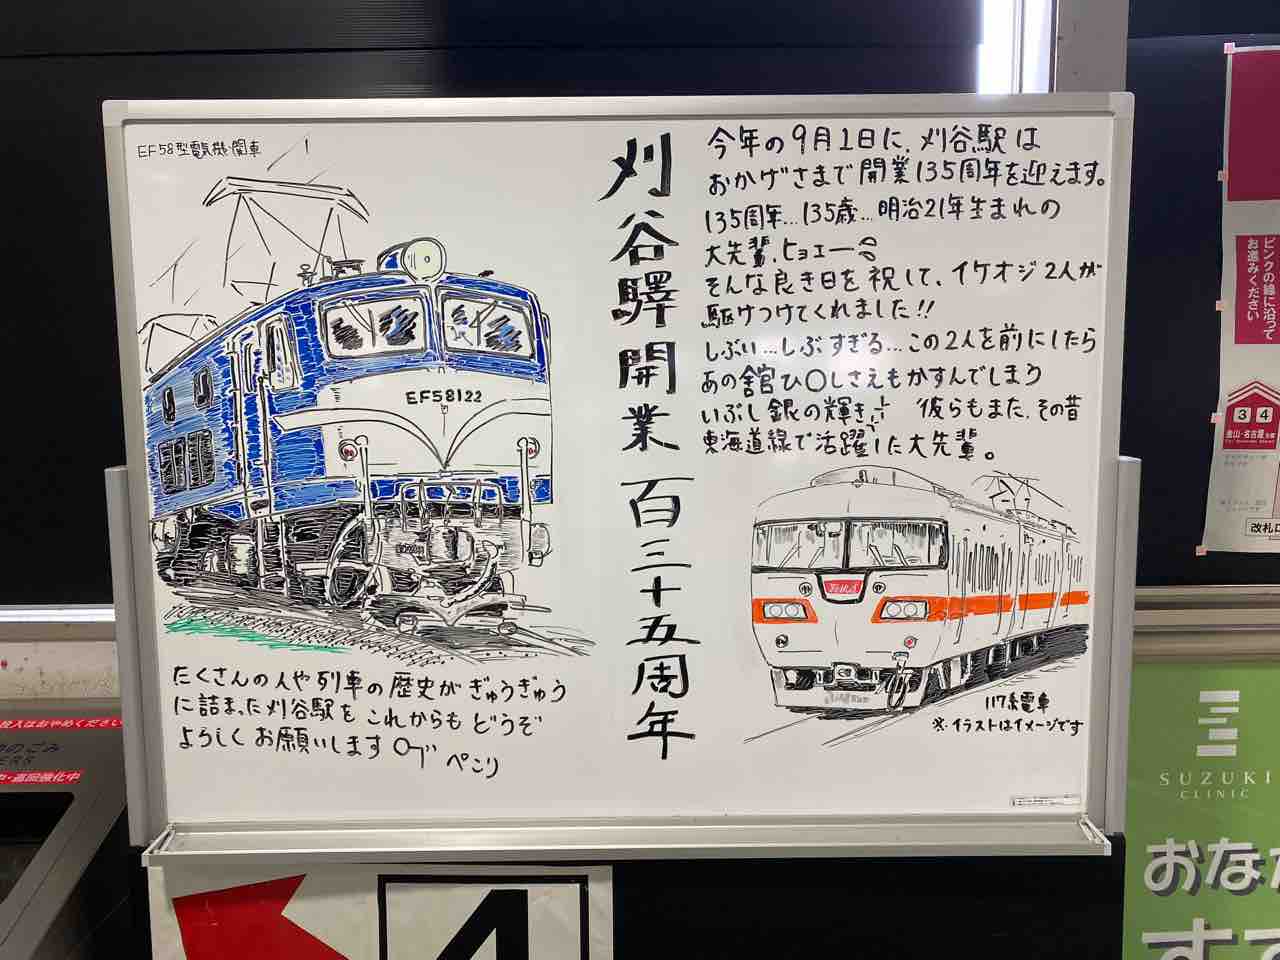 EF58型電気機関車
EF58122
たくさんの人や列車の歴史がぎゅうぎゅう
に詰まった刈谷駅をこれからもどうぞ
ようしくお願いします
ぺこり
刈谷驛開業百三十五周年
今年の9月1日に、刈谷駅は
おかげさまで開業135周年を迎えます。
135周年…135歳…明治21年生まれの
大先輩、ヒョエー
そんな良き日を祝して、イケオジ2人が
駆けつけてくれました!!
しぶい…しぶすぎる…この2人を前にしたら
あの舘ひ〇しさえもかすんでしまう
いぶし銀の輝き 彼らもまた、その昔
東海道線で活躍した大先輩。
117系電車
※イラストはイメージです
ピンクの線に沿って
お進みください
3 4
金山・名古屋方面
改札口
投入はおやめください
のごみ
巡回強化中
4
SUZUKI
CLINIC
おな
す